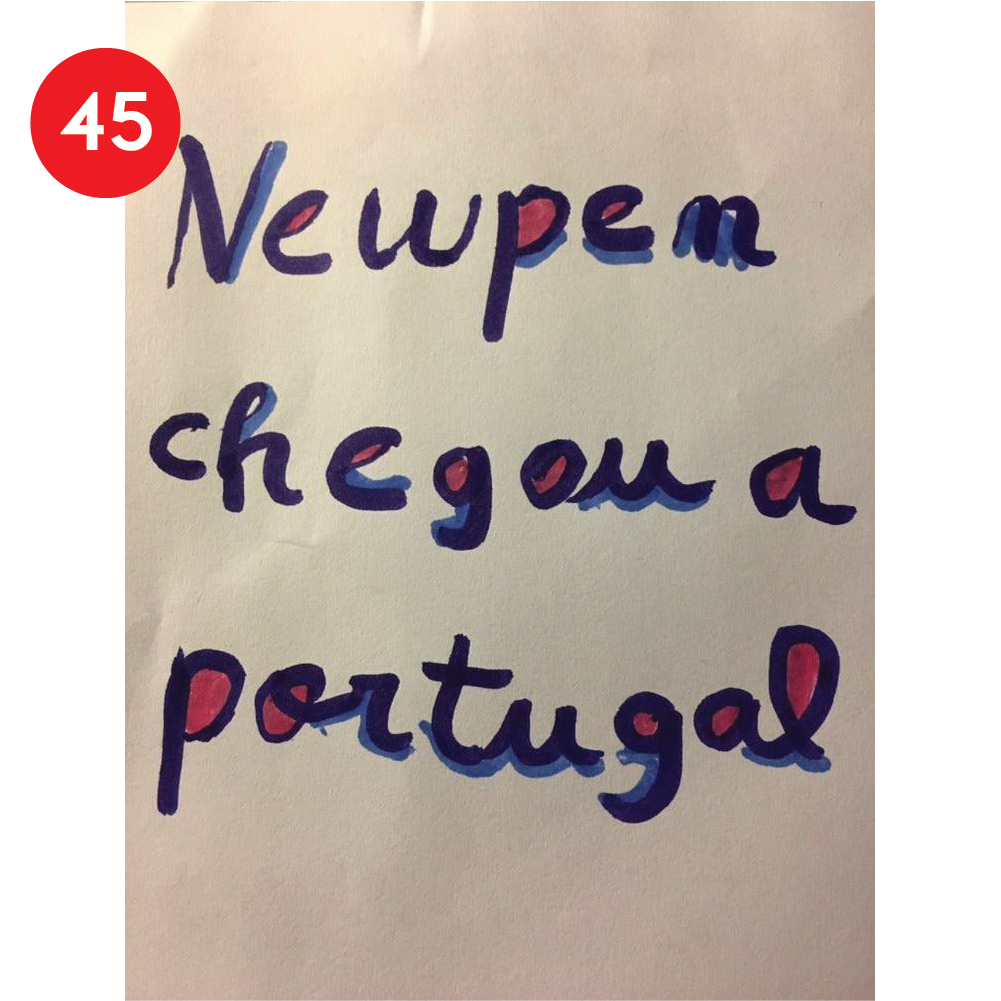 45
Newpen
chegou a
portugal